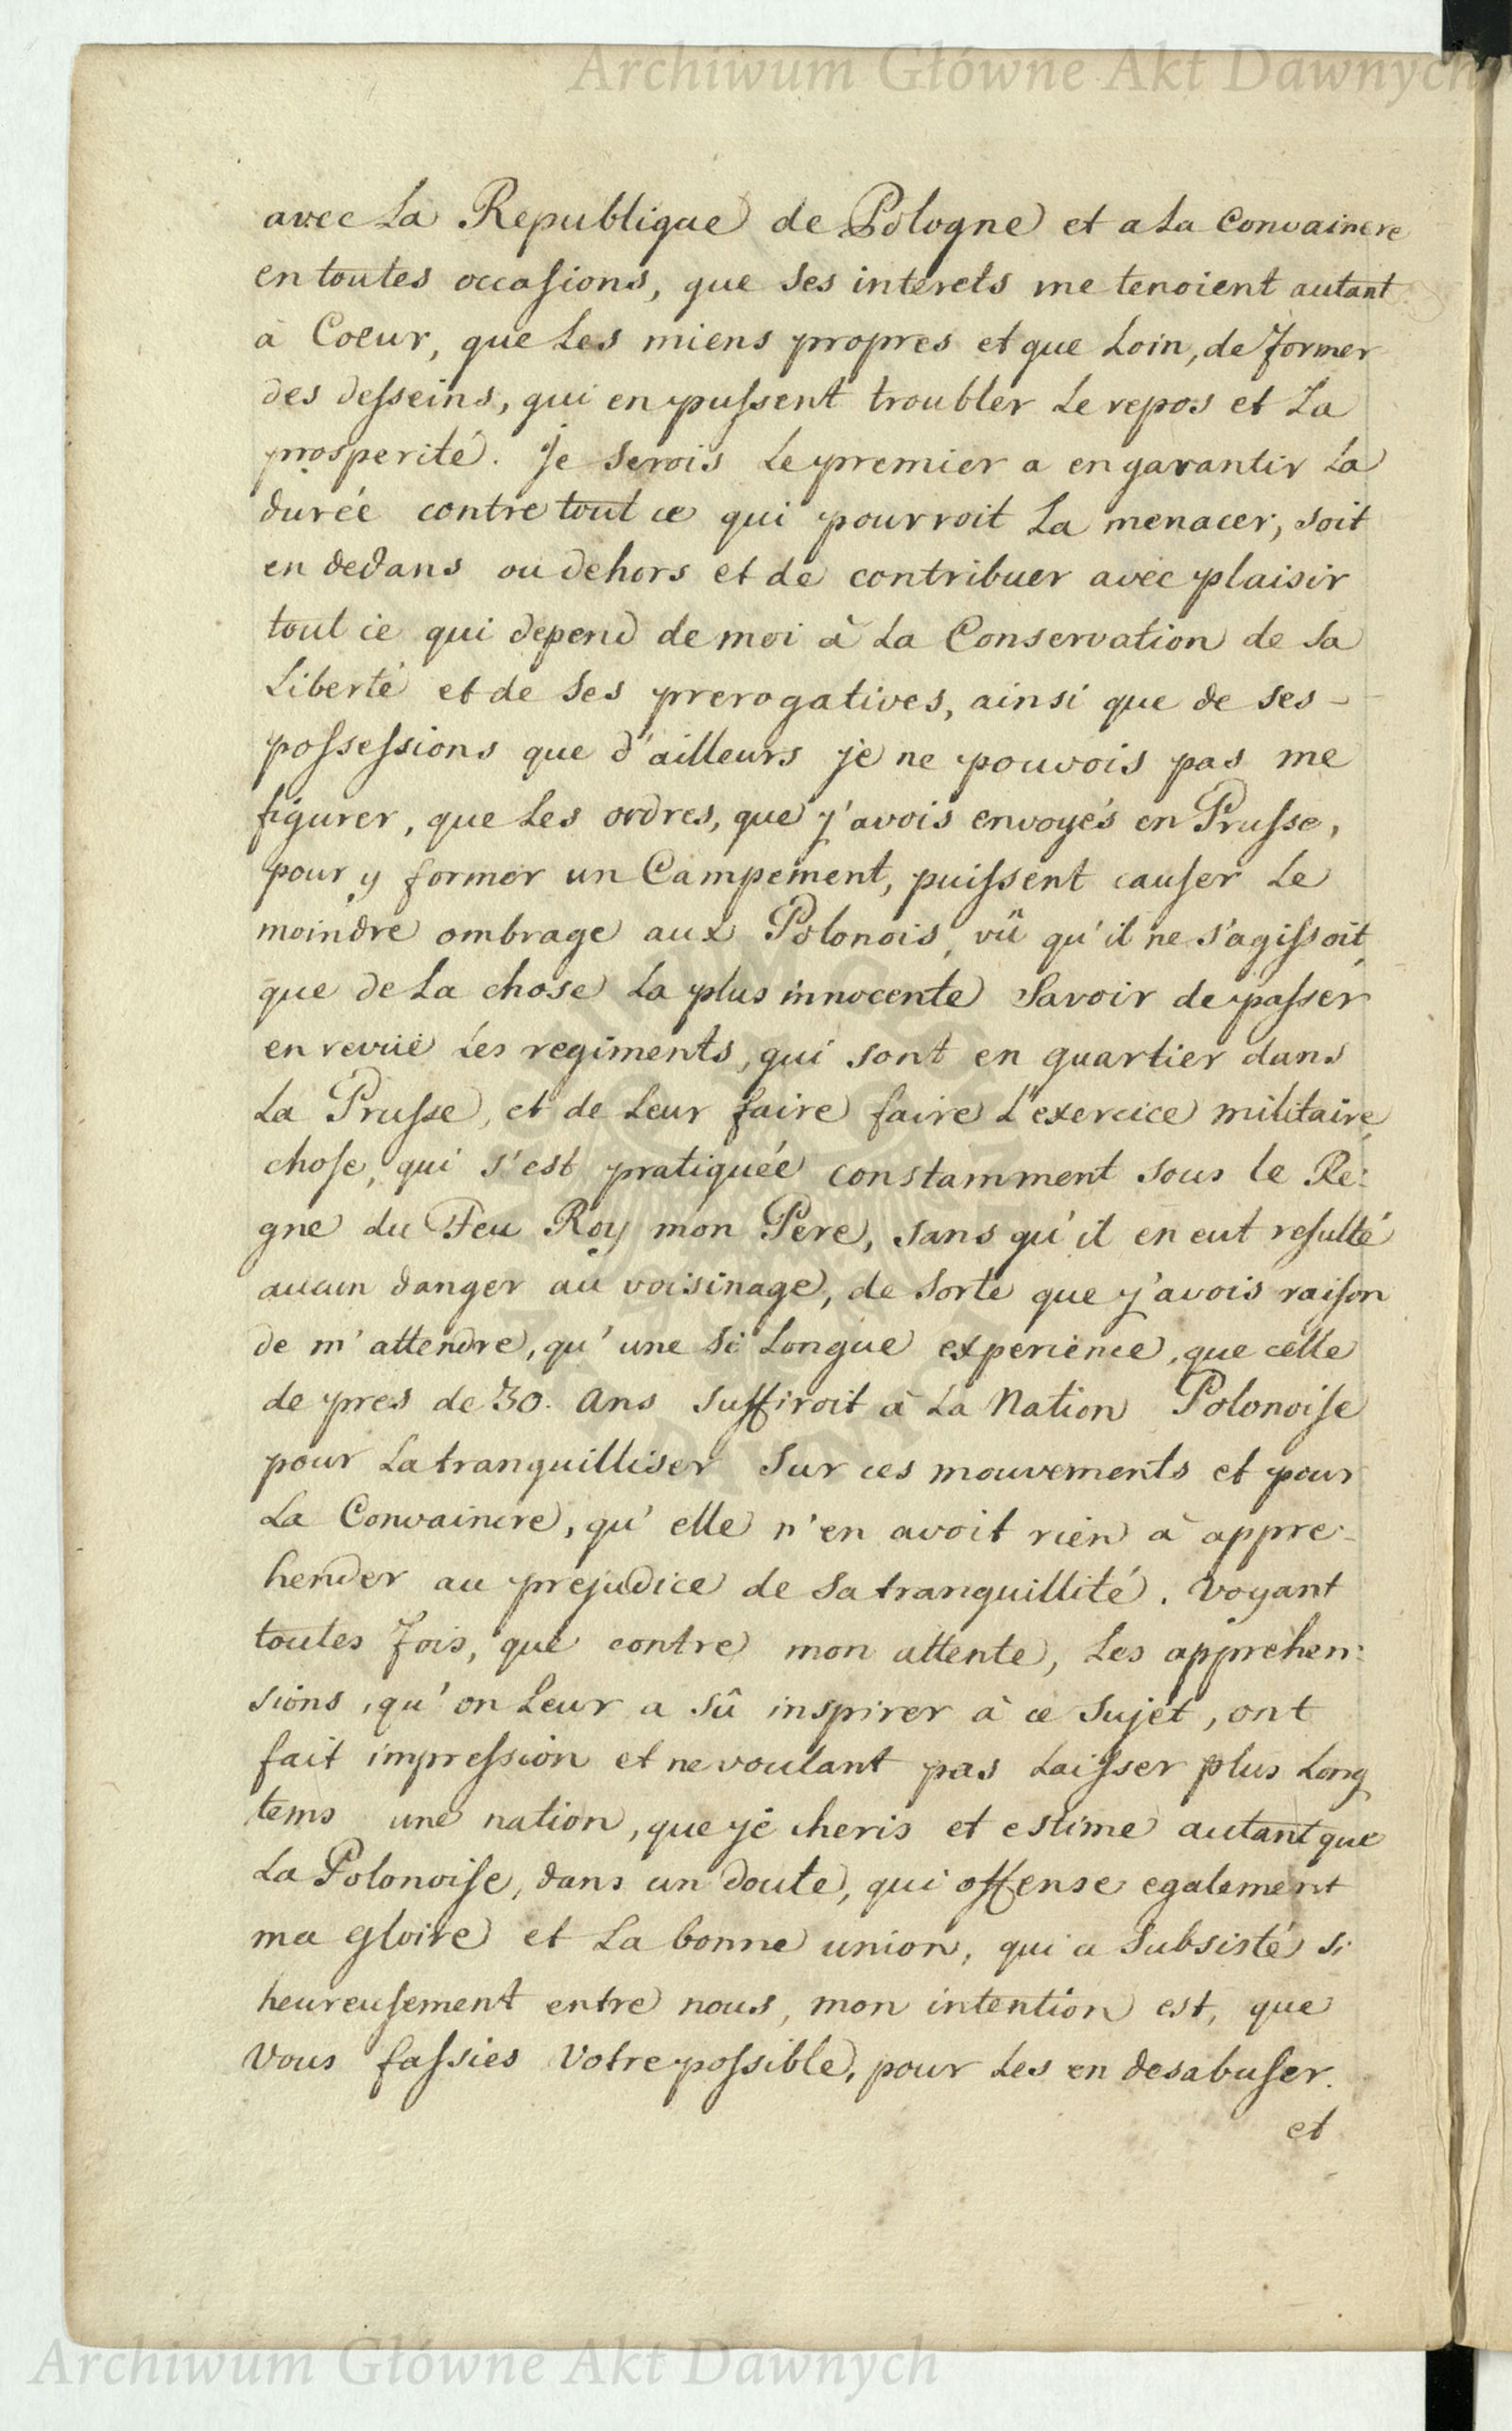 Archiwum Główne Akt Dawnych
avec La Republique de Pologne et a La Convaincre
en toutes occasions, que Ses interets me tenoient autant
à Coeur, que Les miens propres et que Loin, de former
des desseins, qui en pussent troubler Le repos et La
prosperité. Je Serois Le premier a en garantir La
durée contre tout ce qui pourroit La menacer, soit
en dedans ou dehors et de contribuer avec plaisir
tout ce qui depend de moi à La Conservation de Sa
Liberté et de Ses prerogatives, ainsi que de ses -
possessions que d'ailleurs je ne pouvois pas me
figurer, que Les ordres, que j'avois envoyés en Prusse,
pour y former un Campement, puissent causer Le
moindre ombrage aux Polonois, vû qu'il ne s'agissoit
que de La chose La plus innocente Savoir de passer
en revüe Les regiments, qui sont en quartier dans
La Prusse, et de Leur faire faire L'exercice militaire
chose, qui s'est pratiquée constamment sous le Re:
gne du Feu Roy mon Pere, sans qu'il en eut resulté
aucun danger au voisinage, de Sorte que j'avois raison
de m'attendre, qu'une Si Longue experience, que celle
de pres de 30. Ans Suffiroit à La Nation Polonoise
pour La tranquilliser Sur ces mouvements et pour
La Convaincre, qu'elle n'en avoit rien à appre-
hender au prejudice de Sa tranquillité. Voyant
toutes fois, que contre mon attente, Les apprehen:
sions, qu'on Leur a Sû inspirer à ce Sujet, ont
fait impression et ne voulant pas Laisser plus Long
tems une nation, que je cheris et estime autant que
La Polonoise, dans un doute, qui offense egalement
ma gloire et La bonne union, qui a Subsisté Si
heureusement entre nous, mon intention est, que
Vous fassies Votre possible, pour Les en desabuser.
et
Archiwum Główne Akt Dawnych